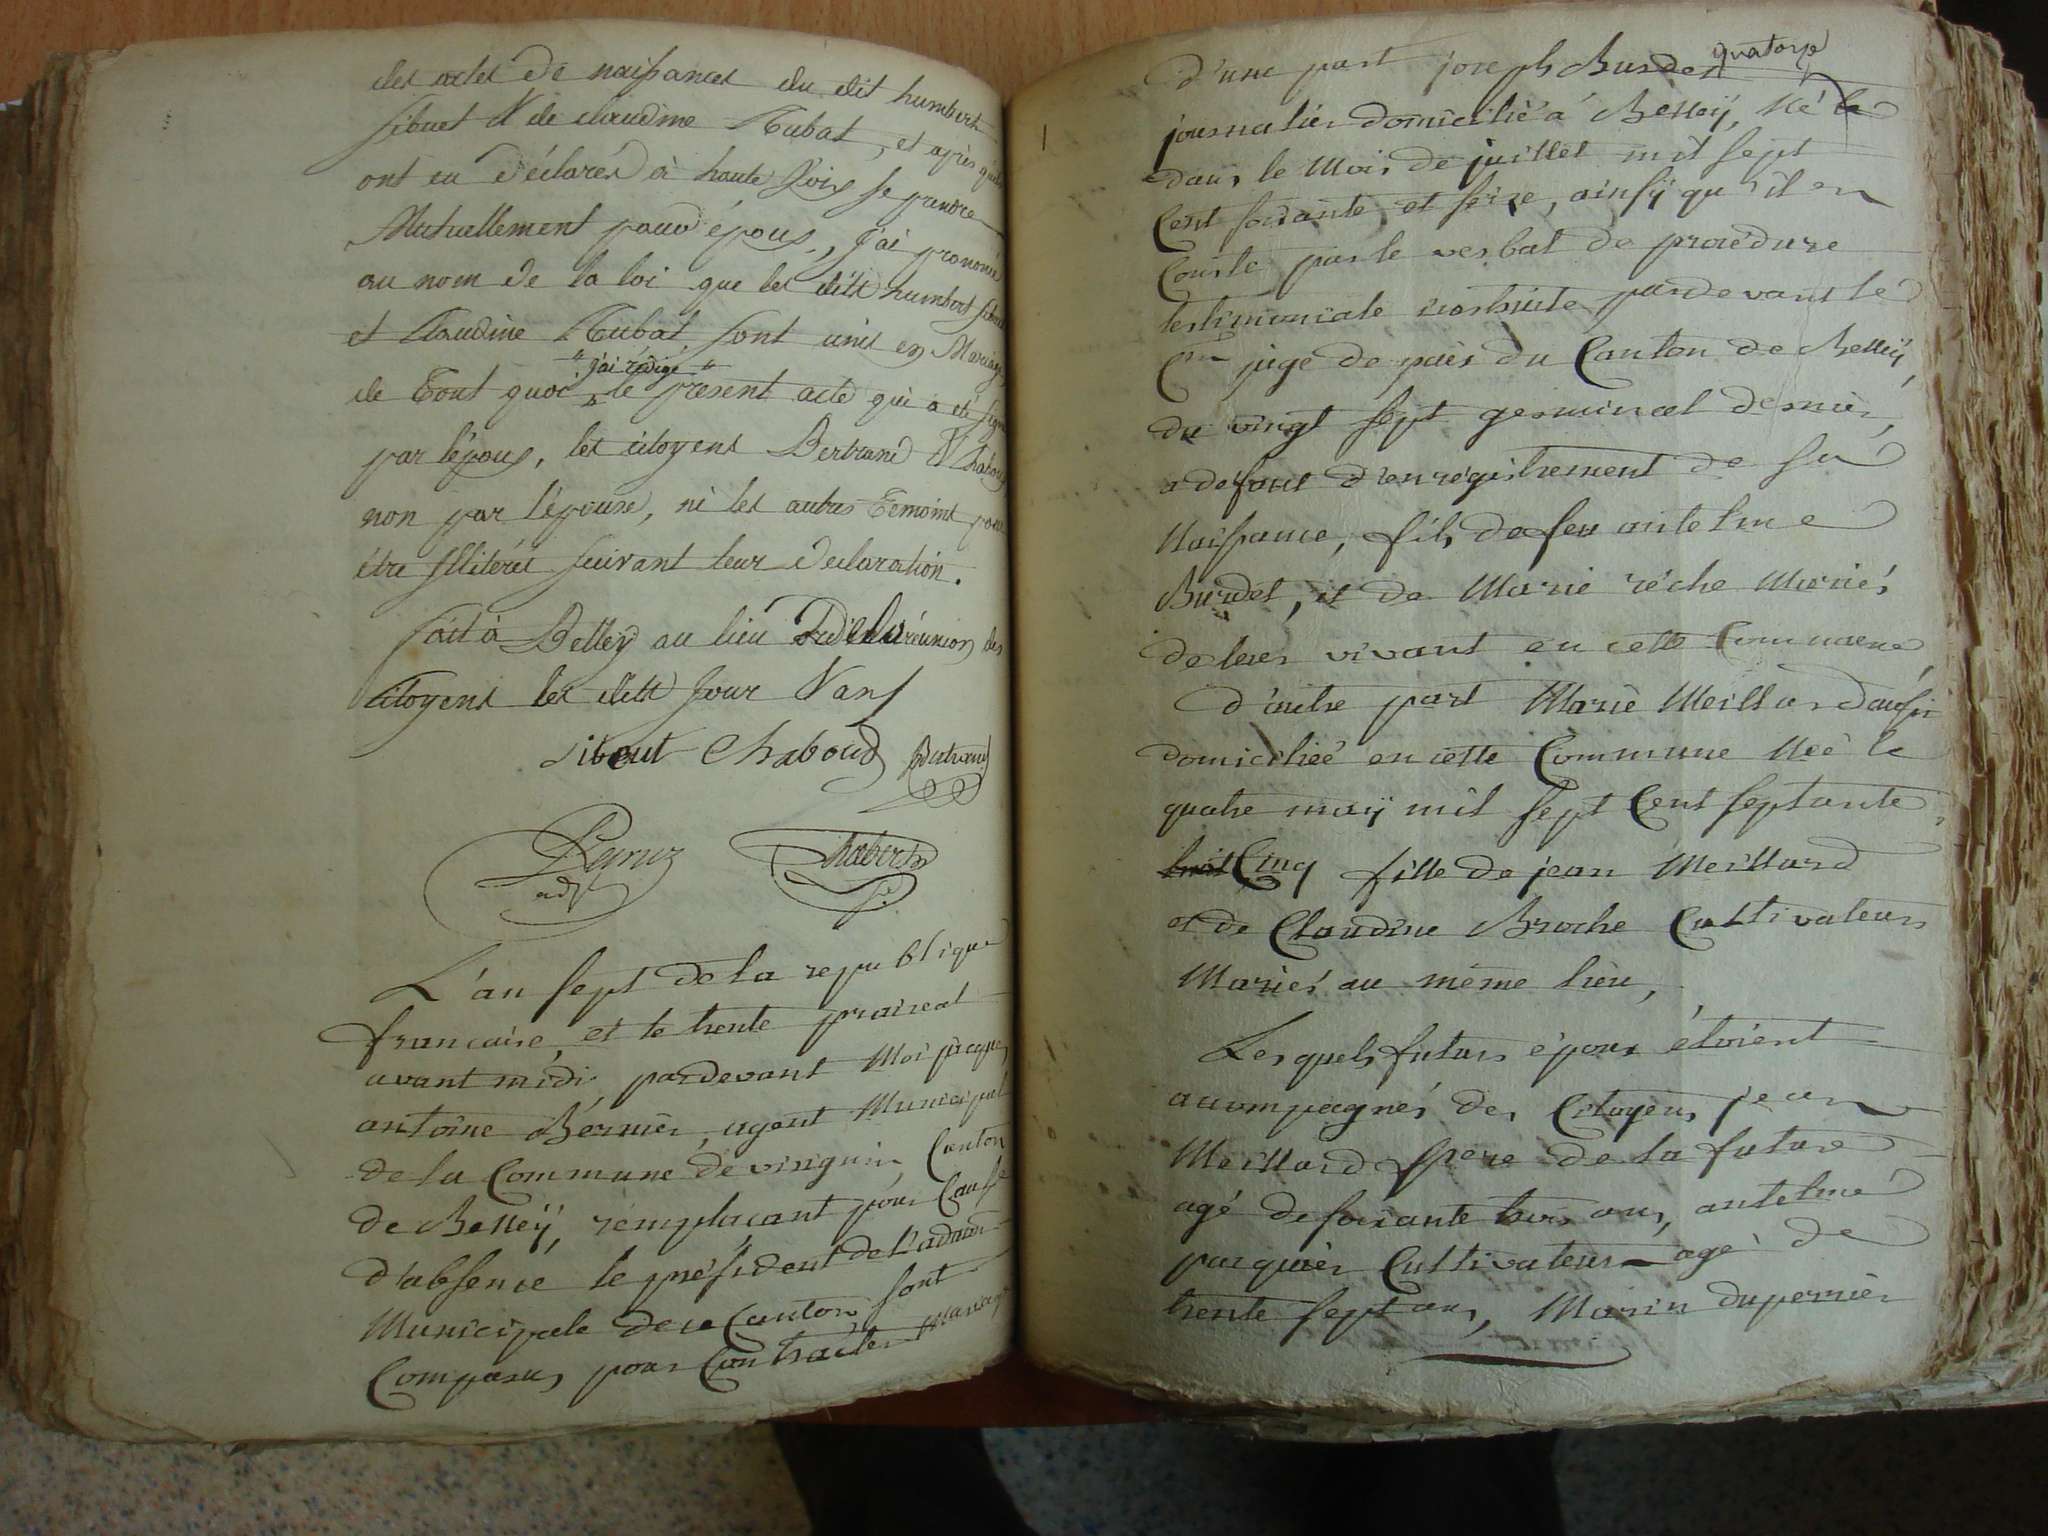 des actes de naissances du dit humbert
Sibuet & de claudine Rubat, et après qu'ils
ont eu déclarés à haute voix se prendre
Mutuellement pour époux, j'ai prononcé
au nom de la loi que les dits humbert Sibuet
et Claudine Rubat, sont unis en Mariage
"j'ai rédigé"
de Tout quoi le present acte qui a été signé
par l'époux, les citoyens Bertrand & Chaboud
non par l'épouse, ni les autres Temoins pour
être Illiterés suivant leur declaration.
fait à Belley au lieu de la réunion des
citoyens les dits jour & ans
Sibuet Chaboud Bertrand
adj.
L'an sept de la republique
francaise, et le trente praireal
avant midi, pardevant Moi jacques
antoine Bérnier, agent Municipal
de la Commune de virignin, Canton
de Belleÿ, remplacant pour Cause
d'absence le président de L'adm͞on
Municipale de ce Canton, sont
Comparus, pour Contracter Mariage
quatorze
d'une part joseph Burdet
journalier domicilié a Belleÿ, Né le
dans le Mois de juillet mil sept
Cent soixante et seize, ainsÿ qu'il en
Conste par le verbal de procédure
testimoniale instruite pardevant le
C.en juge de paix du Canton de Belleÿ,
du vingt sept germinal dernier,
a defaut d'enregistrement de sa
Naissance, fils de feu antelme
Burdet, et de Marie réche Mariés
de leur vivant en cette Commune,
d'autre part Marie Meillard aussi
domiciliée en cette Commune Née le
quatre maÿ mil sept Cent septante
huit Cinq fille de jean Meillard
et de Claudine Broche Cultivateurs
Mariés au même lieu,
Lesquels futurs époux étoient
accompagnés des Citoyens jean
Meillard père de la future
agé de soixante trois ans, antelme
pasquier Cultivateur agé de
trente sept ans, Marin dupernier